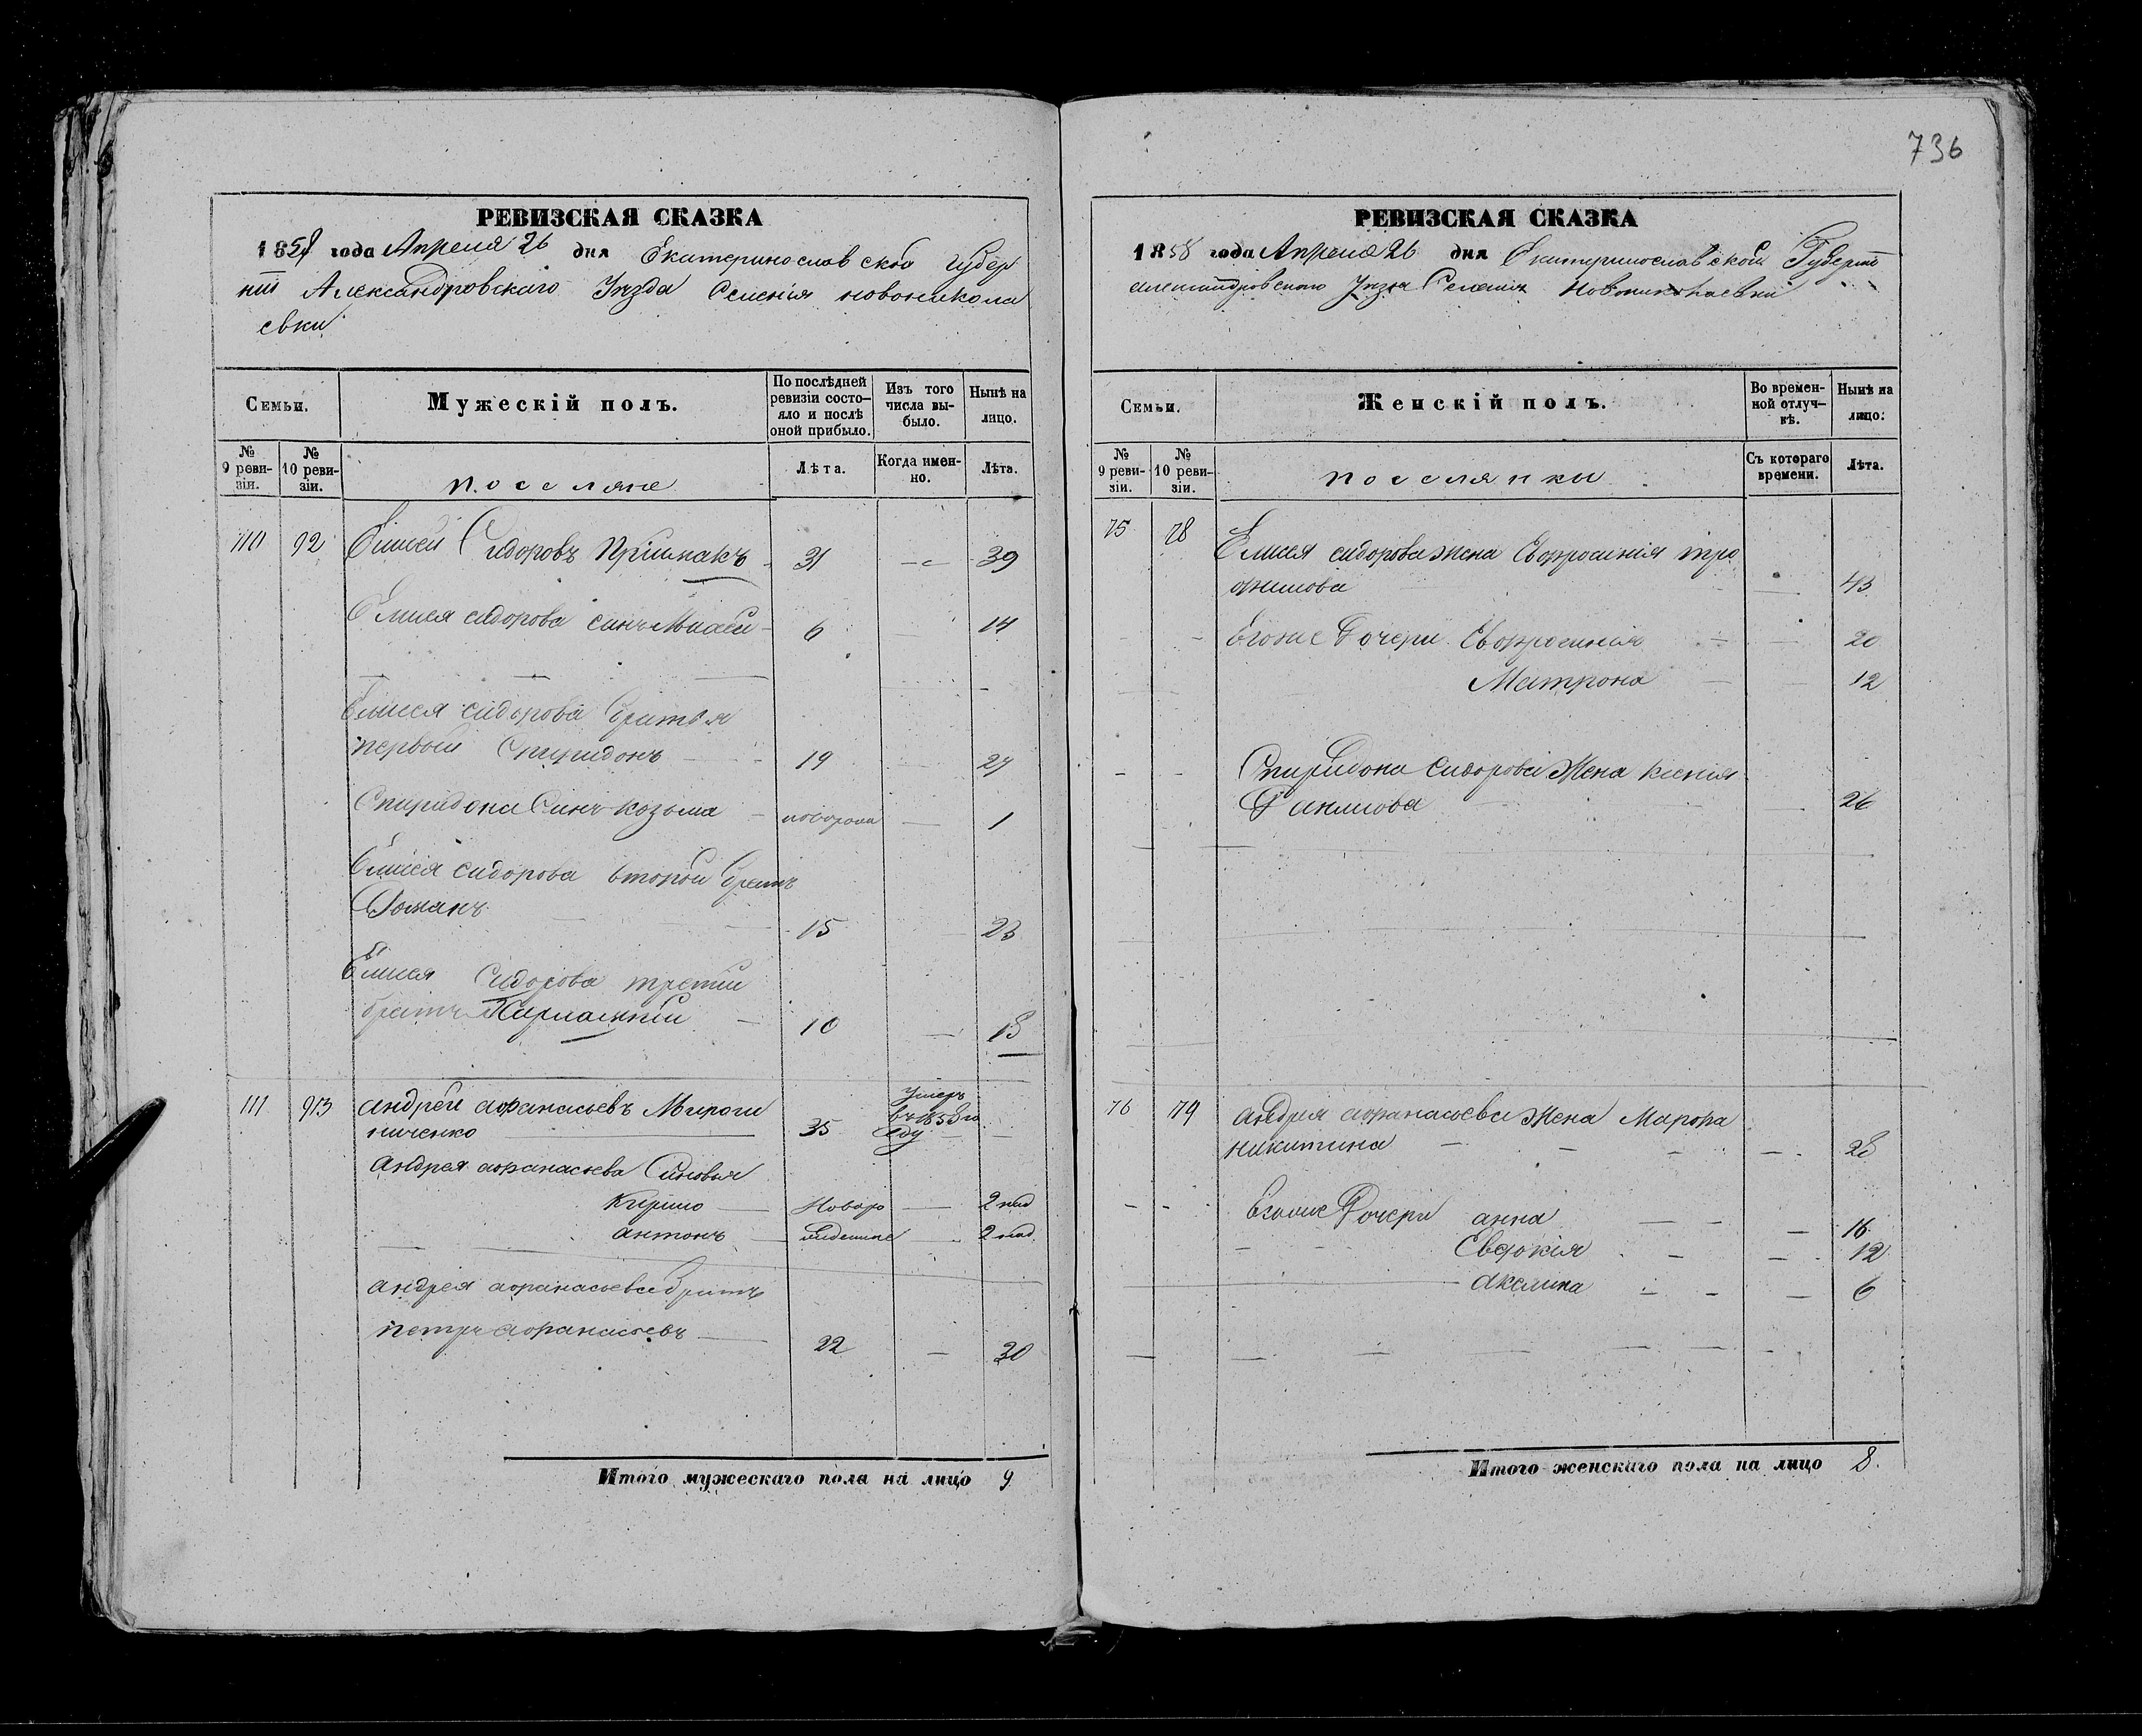 736
РЕВИЗСКАЯ СКАЗКА
1858 года Апреля 26 дня Екатеринославской губер
ніи Александровскаго Уезда Селенія новоникола
евки
Семьи.
Мужескій полъ.
По послѣдней ревизіи состо-яло и послѣ оной прибыло.
Изъ того числа вы-было.
Нынѣ на лицо.
№ 9 реви-зіи.
№ 10 реви-зіи.
поселяне
Лѣта.
Когда имен-но.
Лѣта.
110 92 Елисей Сидоровъ Прішпакъ 31 — 39
Елисея сидорова синъ 6 — 14
Елисея сидорова братья
первый Спиридонъ 19 — 27
Спиридона Синъ козьма новорож — 1
Елисея сидорова второй братъ
Романъ 15 — 23
Елисея Сидорова третій
братъ Харлампій 10 — 18
111 93 андрей афанасьевъ Мироши
ниченко 35 умеръ въ 1858 го ду —
Андрея афанасьева Синовья
Кирило Новоро — 2 нед
антонъ жденные — 2 нед
андрея афанасьева братъ
петръ афанасьевъ 22 — 30
Итого мужескаго пола на лицо 9
РЕВИЗСКАЯ СКАЗКА
1858 года Апреля 26 дня Екатеринославской Губерніи
александровского Уезда Селенія Новониколаевки
Семьи.
Женскій полъ.
Во времен-ной отлуч-кѣ.
Нынѣ на лицо.
№ 9 реви-зіи.
№ 10 реви-зіи.
поселянки
Съ котораго времени.
Лѣта.
75 78 Елисея сидорова жена Евфросинія тро
фимова — 43
Егоже Дочери Евфросинія — 20
Матрона — 12
Спиридона Сидорова Жена ксенія
— 26
76 79 андрея афанасьева жена Марфа
никитина — 28
Егоже Дочери анна — 16
Евдокія — 12
акелина — 6
Итого женскаго пола на лицо 8.